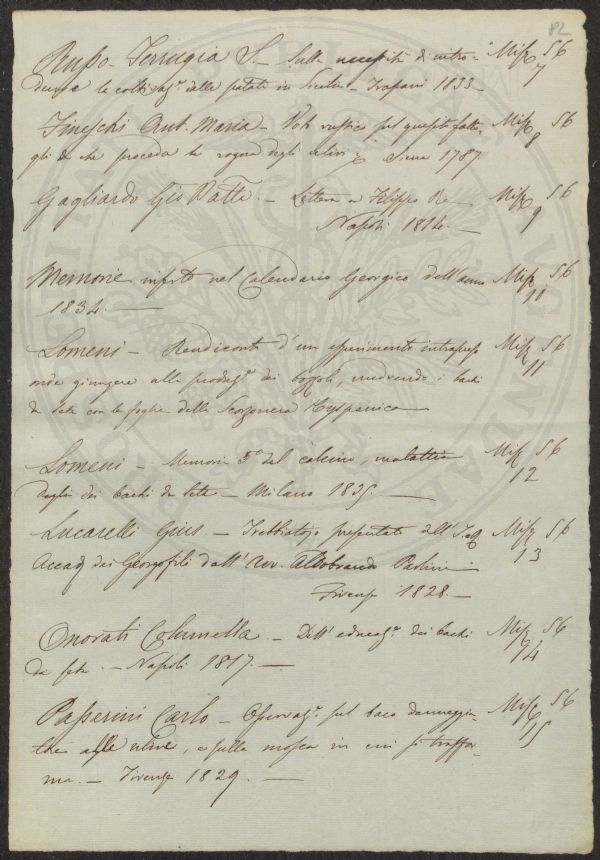 82
Russo-Ferrugia S. – Sulla necessità di intro- Misc. 56
durre la coltivaz.e delle patate in Sicilia – Trapani 1833 – 7
Fineschi Ant. Maria – Voti rustico sul quesito fatto, Misc. 56
gli da che proceda la rogna degli ulivi – Siena 1787 8
Gagliardo Gio Batta. – Lettera a Filippo Re – Misc. 56
Napoli 1814. – 9
Memorie inserite nel Calendario Georgico dell'anno Misc. 56
1834. – 10
Lomeni – Rendiconto d'un esperimento intrapreso Misc. 56
onde giungere alla produz.e dei bozzoli, nutrendo i bachi 11
da seta con le foglie della Scorzonera Hyspanica
Lomeni – Memoria 5ª del calcino, malattia Misc. 56
degli dei bachi da seta – Milano 1835. – 12
Lucarelli Gius. – Trebbiatojo presentato all' Misc. 56
Accad. dei Georgofili dall' Avv. Aldobrando Paolini – 13
Firenze 1828. –
Onorati Columella. – Dell'educaz.e dei bachi Misc. 56
da seta. – Napoli 1817. – 14
Passerini Carlo – Osservaz.i sul baco danneggia- Misc. 56
tore alle ulive, e sulla mosca in cui si trasfor- 15
ma. – Firenze 1829. –